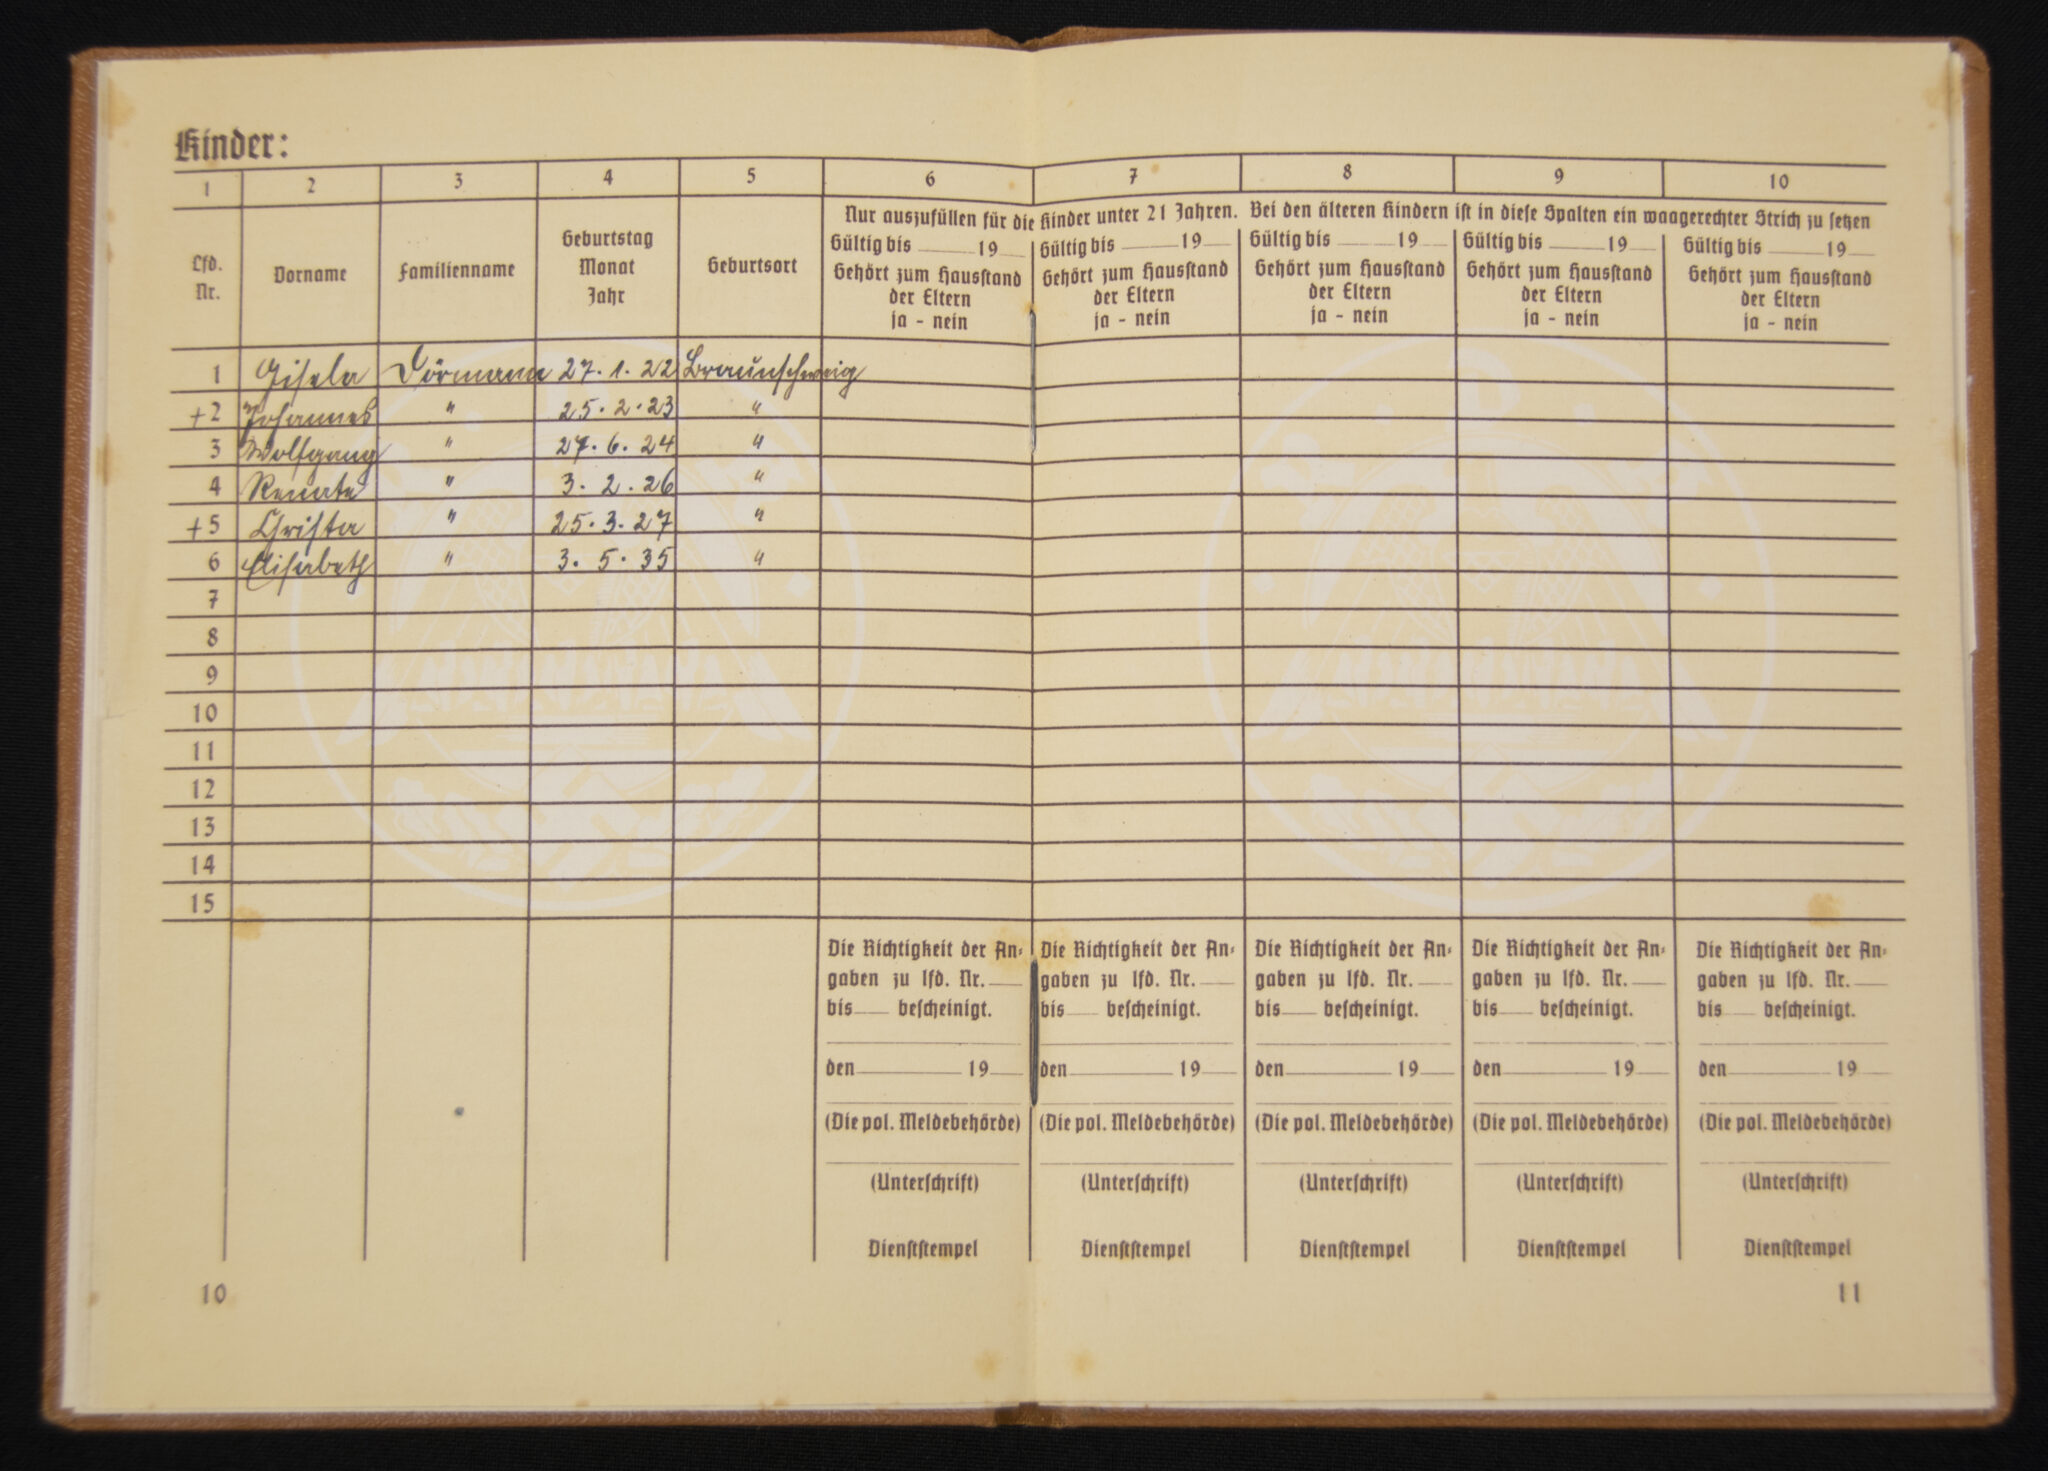 Kinder:
1 2 3 4 5 6 7 8 9 10
Nur auszufüllen für die Kinder unter 21 Jahren. Bei den älteren Kindern ist in diese Spalten ein waagerechter Strich zu setzen
Lfd. Nr. Vorname Familienname Geburtstag Monat Jahr Geburtsort
Gültig bis 19
Gehört zum Hausstand
der Eltern
ja - nein
Gültig bis 19
Gehört zum Hausstand
der Eltern
ja - nein
Gültig bis 19
Gehört zum Hausstand
der Eltern
ja - nein
Gültig bis 19
Gehört zum Hausstand
der Eltern
ja - nein
Gültig bis 19
Gehört zum Hausstand
der Eltern
ja - nein
1 Gisela Dörmann 27. 1. 22 Braunschweig
+2 Johannes " 25. 2. 23 "
3 Wolfgang " 27. 6. 24 "
4 Renate " 3. 2. 26 "
+5 Christa " 25. 3. 27 "
6 Elisabeth " 3. 5. 35 "
7
8
9
10
11
12
13
14
15
Die Richtigkeit der An-
gaben zu lfd. Nr.
bis bescheinigt.
den 19
(Die pol. Meldebehörde)
(Unterschrift)
Dienststempel
Die Richtigkeit der An-
gaben zu lfd. Nr.
bis bescheinigt.
den 19
(Die pol. Meldebehörde)
(Unterschrift)
Dienststempel
Die Richtigkeit der An-
gaben zu lfd. Nr.
bis bescheinigt.
den 19
(Die pol. Meldebehörde)
(Unterschrift)
Dienststempel
Die Richtigkeit der An-
gaben zu lfd. Nr.
bis bescheinigt.
den 19
(Die pol. Meldebehörde)
(Unterschrift)
Dienststempel
Die Richtigkeit der An-
gaben zu lfd. Nr.
bis bescheinigt.
den 19
(Die pol. Meldebehörde)
(Unterschrift)
Dienststempel
10
11